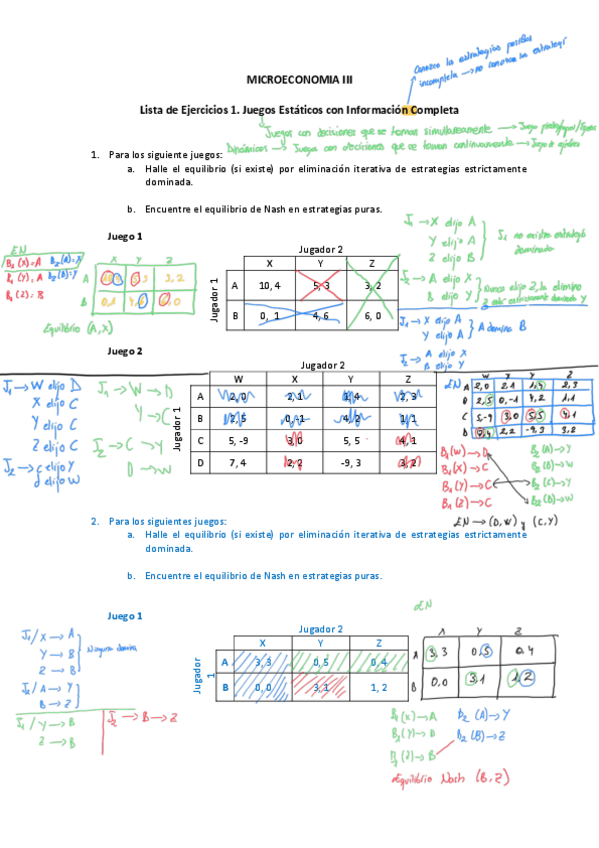 Conozco la estrategias posibles
incompleta → no conozco su estrategi
MICROECONOMIA III
Lista de Ejercicios 1. Juegos Estáticos con Información Completa
Juegos con decisiones que se toman simultaneamente → Juego
Dinámicos → Juegos con decisiones que se toman continuamente → Juego de ajedrez
1. Para los siguiente juegos:
a. Halle el equilibrio (si existe) por eliminación iterativa de estrategias estrictamente
dominada.
b. Encuentre el equilibrio de Nash en estrategias puras.
Juego 1
EN
B₁(X)=A B₂(A)=X
B₁(Y)=A B₂(B)=Y
B₁(Z)=B
X Y Z
A 3, 2
B 0,1 0
Equilibrio (A,X)
Jugador 2
X Y Z
Jugador 1
A 10, 4 5, 3 3, 2
B 0, 1 4, 6 6, 0
J₁ → X elijo A
Y elijo A
Z elijo B
J₁ no existe estrategia
dominada
J₂ → A elijo X
B elijo Y
Nunca elijo Z, la elimino
Z está estrictamente dominada Y
J₁ → X elijo A
Y elijo A
A domina B
J₂ → A elijo X
B elijo Y
Juego 2
J₁ → W elijo D
X elijo C
Y elijo C
Z elijo C
J₂ → C elijo Y
D elijo W
J₁ → W → D
Y → C
J₂ → C → Y
D → W
Jugador 2
W X Y Z
Jugador 1
A 2, 0 2, 1 1, 4 2, 3
B 2, 5 0, -1 4, 2 1, 1
C 5, -9 3, 0 5, 5 4, 1
D 7, 4 2, 2 -9, 3 3, 2
EN
W X Y Z
A 2,0 2,1 1,4 2,3
B 2,5 0,-1 4,2 1,1
C 5,-9 3,0 5,5 4,1
D 7,4 2,2 -9,3 3,2
B₁(W) → D B₂(A) → Y
B₁(X) → C B₂(B) → W
B₁(Y) → C B₂(C) → Y
B₁(Z) → C B₂(D) → W
EN → (D,W) y (C,Y)
2. Para los siguientes juegos:
a. Halle el equilibrio (si existe) por eliminación iterativa de estrategias estrictamente
dominada.
b. Encuentre el equilibrio de Nash en estrategias puras.
Juego 1
J₁/X → A
Y → B
Z → B
Ninguna domina
J₂/A → Y
B → Z
J₁/Y → B
Z → B
J₂ → B → Z
Jugador 2
X Y Z
Jugador 1
A 3, 3 0, 5 0, 4
B 0, 0 3, 1 1, 2
EN
Y Z
A 3, 3 0,5 0,4
B 0,0 3,1 1,2
B₁(X) → A B₂(A) → Y
B₁(Y) → B B₂(B) → Z
B₁(Z) → B
Equilibrio Nash (B,Z)